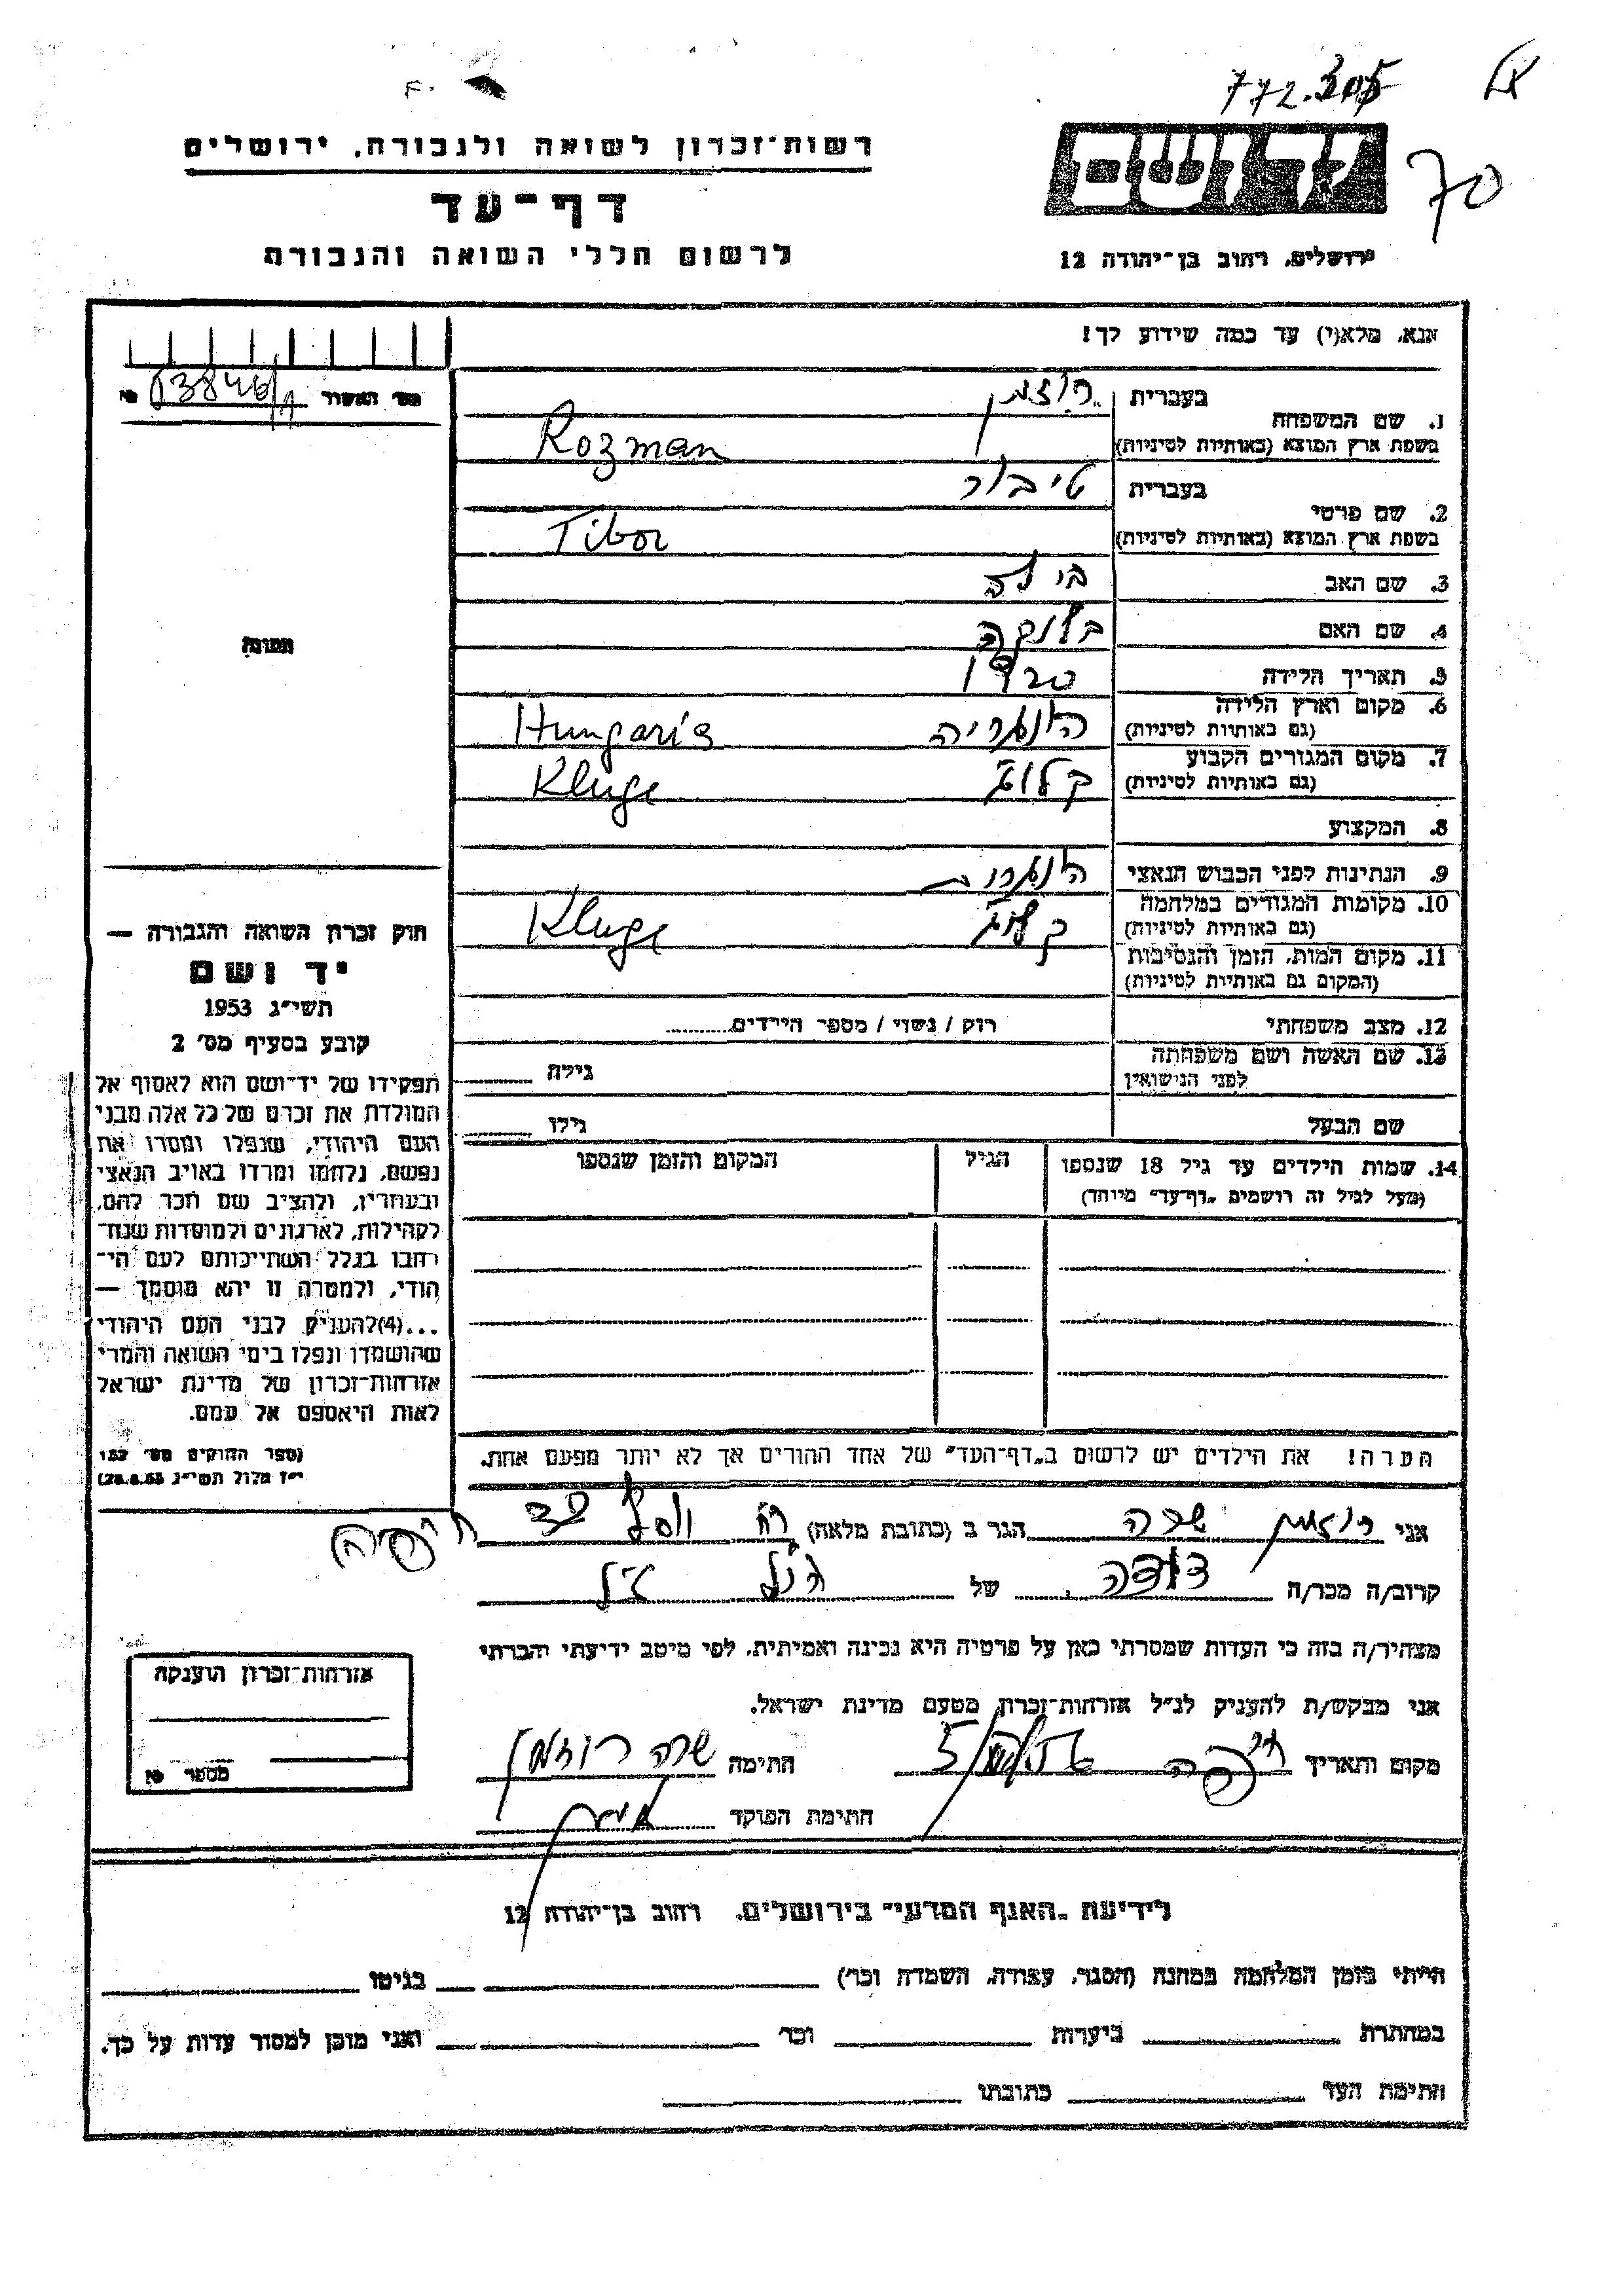 772.305
70
רשות־זכרון לשואה ולגבורה, ירושלים
דף־עד
לרשום חללי השואה והגבורה
ידושם
ירושלים, רחוב בן־יהודה 12
אנא, מלא(י) עד כמה שידוע לך!
מס׳ האשור
בעברית רוזמן
1. שם המשפחה
בשפת ארץ המוצא (באותיות לטיניות) Rozman
בעברית טיבור
2. שם פרטי
בשפת ארץ המוצא (באותיות לטיניות) Tibor
3. שם האב בילה
4. שם האם בלנקה
5. תאריך הלידה 1920
6. מקום וארץ הלידה הונגריה Hungaria
(גם באותיות לטיניות)
7. מקום המגורים הקבוע קלוג׳ Kluge
(גם באותיות לטיניות)
8. המקצוע
9. הנתינות לפני הכבוש הנאצי
10. מקומות המגורים במלחמה קלוג׳ Kluge
(גם באותיות לטיניות)
11. מקום המות, הזמן והנסיבות
(המקום גם באותיות לטיניות)
12. מצב משפחתי רוק / נשוי / מספר הילדים
13. שם האשה ושם משפחתה גילה
לפני הנישואין
שם הבעל גילו
14. שמות הילדים עד גיל 18 שנספו הגיל המקום והזמן שנספו
(מעל לגיל זה רושמים „דף־עד״ מיוחד)
תמונה
חוק זכרון השואה והגבורה —
יד ושם
תשי״ג 1953
קובע בסעיף מס׳ 2
תפקידו של יד־ושם הוא לאסוף אל
המולדת את זכרם של כל אלה מבני
העם היהודי, שנפלו ומסרו את
נפשם, נלחמו ומרדו באויב הנאצי
ובעוזריו, ולהציב שם וזכר להם,
לקהילות, לארגונים ולמוסדות שנח־
רבו בגלל השתייכותם לעם הי־
הודי, ולמטרה זו יהא מוסמך —
...(4)להעניק לבני העם היהודי
שהושמדו ונפלו בימי השואה והמרי
אזרחות־זכרון של מדינת ישראל
לאות היאספם אל עמם.
(ספר החוקים מס׳ 132
י״ז אלול תשי״ג 28.8.53)
הערה! את הילדים יש לרשום ב„דף־העד״ של אחד ההורים אך לא יותר מפעם אחת.
אני רוזמן שרה הגר ב (כתובת מלאה) רח 32 חיפה
קרוב/ה מכר/ה דודה של הנ״ל
מצהיר/ה בזה כי העדות שמסרתי כאן על פרטיה היא נכונה ואמיתית, לפי מיטב ידיעתי והכרתי
אני מבקש/ת להעניק לנ״ל אזרחות־זכרון מטעם מדינת ישראל.
מקום ותאריך חיפה חתימה שרה רוזמן
חתימת הפוקד
אזרחות־זכרון הוענקה
מספר
לידיעת „האגף המדעי״ בירושלים, רחוב בן־יהודה 12
הייתי בזמן המלחמה במחנה (הסגר, עבודה, השמדה וכו׳) בגיטו
במחתרת ביערות וכו׳ ואני מוכן למסור עדות על כך.
חתימת העד כתובתו